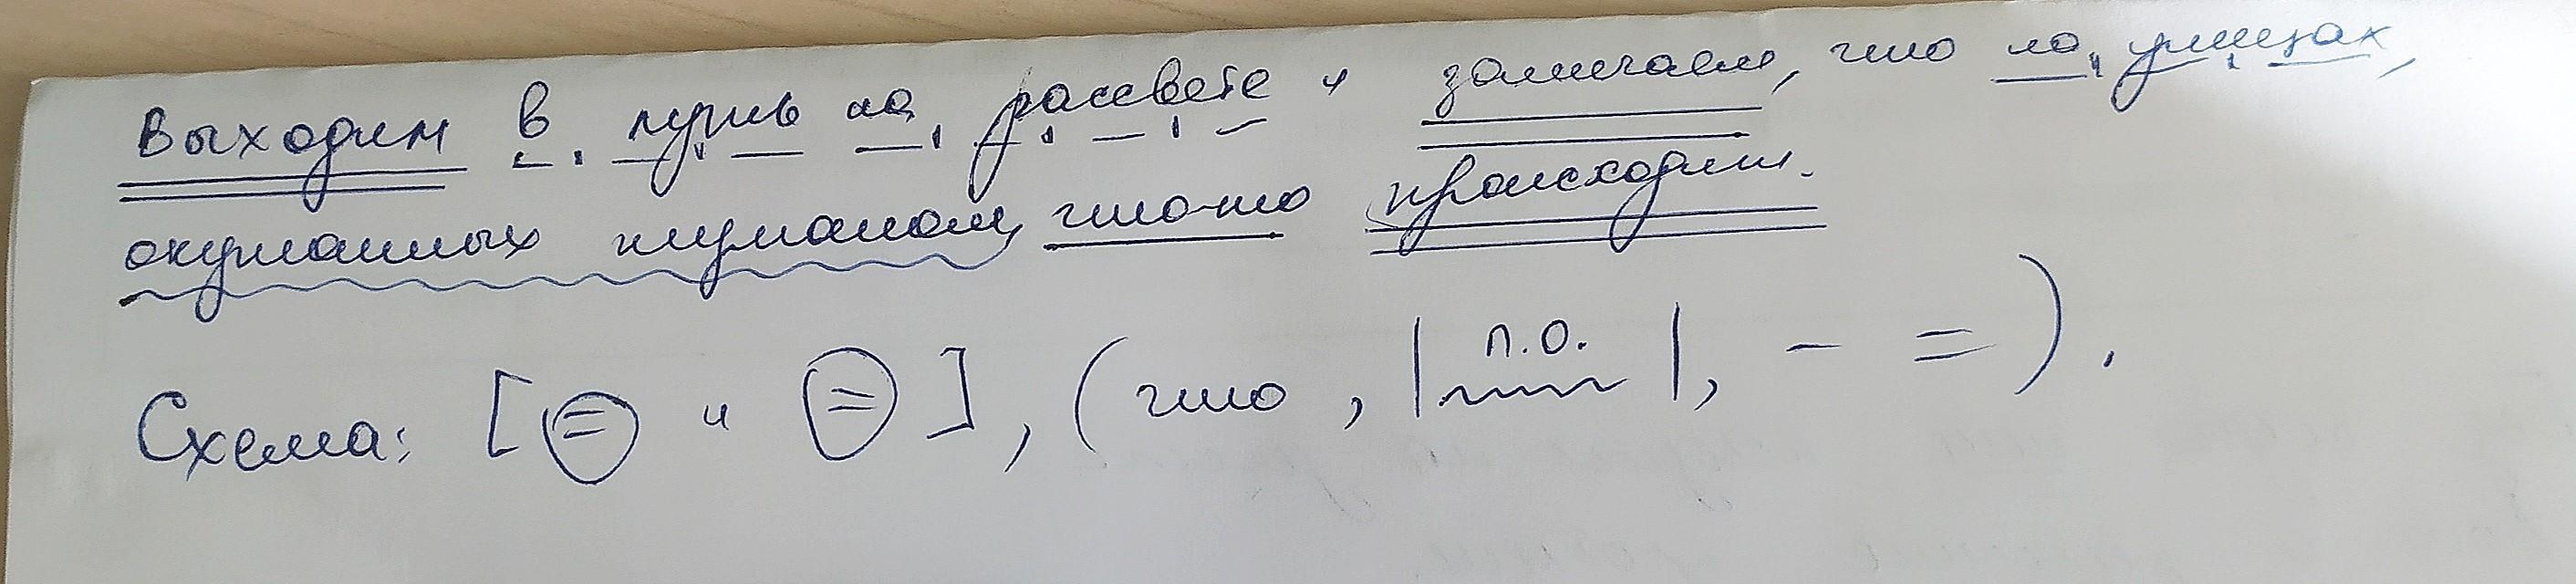 Выходим в путь на рассвете и замечаем, что на улицах,
окутанных туманом, что-то происходит.
Схема: [= и =], (что, |п.о.|, - =).